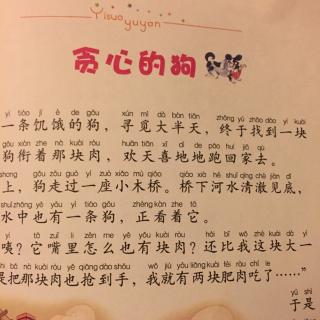 Yisuo yuyan
贪心的狗
yì tiáo jī è de gǒu xún mì dà bàn tiān zhōng yú zhǎo dào yí kuài
一条饥饿的狗，寻觅大半天，终于找到一块
gǒu xián zhe nà kuài ròu huān tiān xǐ dì de pǎo huí jiā qù
狗衔着那块肉，欢天喜地地跑回家去。
shang gǒu zǒu guò yí zuò xiǎo mù qiáo qiáo xià hé shuǐ qīng chè jiàn dǐ
上，狗走过一座小木桥。桥下河水清澈见底，
shuǐ zhōng yě yǒu yì tiáo gǒu zhèng kàn zhe tā
水中也有一条狗，正看着它。
yí tā zuǐ lǐ zěn me yě yǒu kuài ròu hái bǐ wǒ zhè kuài dà yì
咦？它嘴里怎么也有块肉？还比我这块大一
shì bǎ nà kuài ròu yě qiǎng dào shǒu wǒ jiù yǒu liǎng kuài féi ròu chī le
是把那块肉也抢到手，我就有两块肥肉吃了……”
yú shì
于是